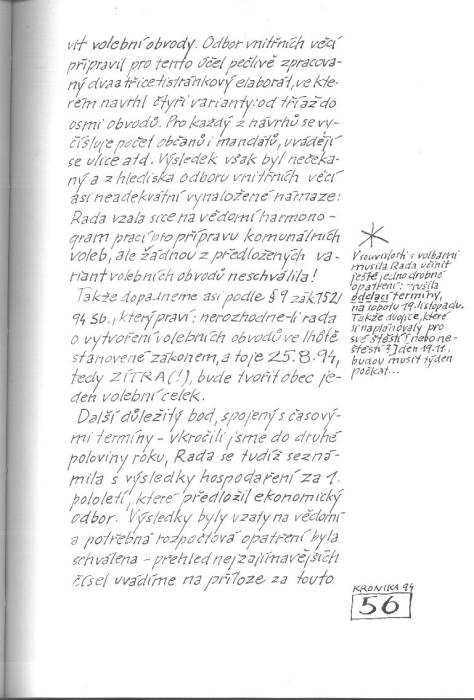 vit volební obvody. Odbor vnitřních věcí
připravil pro tento účel pečlivě zpracova-
ný dvaatřicetistránkový elaborát, ve kte-
rém navrhl čtyři varianty: od tří až do
osmi obvodů. Pro každý z návrhů se vy-
čísluje počet občanů i mandátů, uvádějí
se ulice atd. Výsledek však byl nečeka-
ný a z hlediska odboru vnitřních věcí
asi neadekvátní vynaložené námaze:
Rada vzala sice na vědomí harmono-
gram prací pro přípravu komunálních
voleb, ale žádnou z předložených va-
riant volebních obvodů neschválila!
Takže dopadneme asi podle § 9 zák. 152/
94 Sb., který praví: nerozhodne-li rada
o vytvoření volebních obvodů ve lhůtě
stanovené zákonem, a to je 25.8.94,
tedy ZÍTRA(!), bude tvořit obec je-
den volební celek.
Další důležitý bod, spojený s časový-
mi termíny - vkročili jsme do druhé
poloviny roku, Rada se tudíž sezná-
mila s výsledky hospodaření za 1.
pololetí, které předložil ekonomický
odbor. Výsledky byly vzaty na vědomí
a potřebná rozpočtová opatření byla
schválena - přehled nejzajímavějších
čísel uvádíme na příloze za touto
V souvislosti s volbami
musila Rada učinit
ještě jedno drobné
opatření: zrušila
oddací termíny,
na sobotu 19. listopadu.
Takže dvojice, které
si naplánovaly pro
své štěstí [nebo ne-
štěstí?] den 19.11.,
budou muset týden
počkat...
KRONIKA 94
56